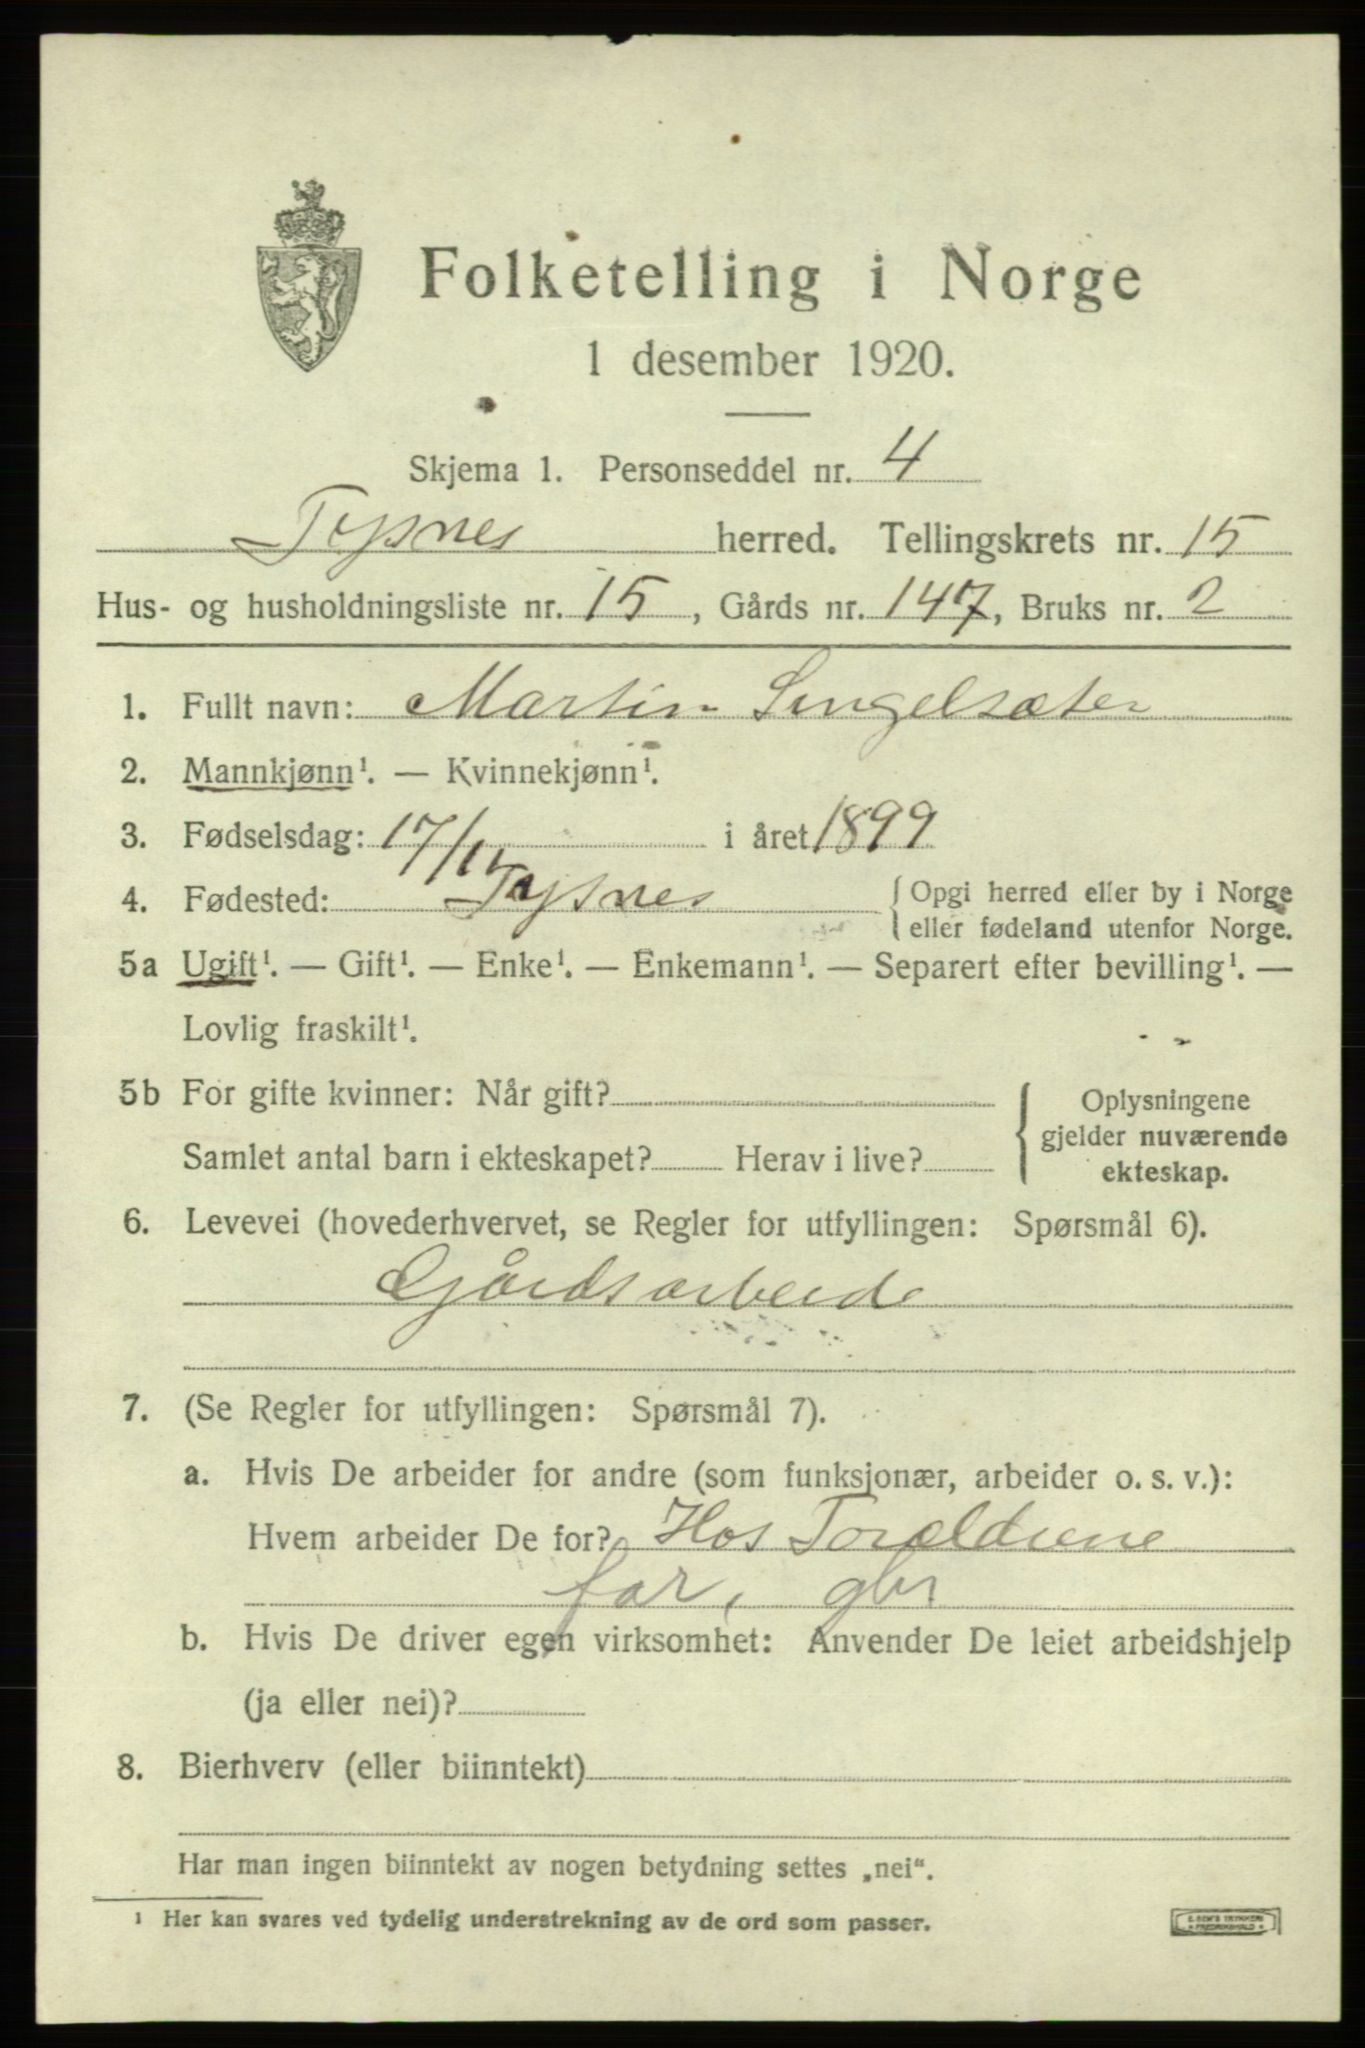 Folketelling i Norge
1 desember 1920.
Skjema 1. Personseddel nr. 4
Tysnes herred. Tellingskrets nr. 15
Hus- og husholdningsliste nr. 15, Gårds nr. 147, Bruks nr. 2
1. Fullt navn: Martin Singelsæter
2. Mannkjønn¹. — Kvinnekjønn¹.
3. Fødselsdag: 17/12 i året 1899
4. Fødested: Tysnes { Opgi herred eller by i Norge
eller fødeland utenfor Norge.
5a Ugift¹. — Gift¹. — Enke¹. — Enkemann¹. — Separert efter bevilling¹. —
Lovlig fraskilt¹.
5b For gifte kvinner: Når gift?
Samlet antal barn i ekteskapet? Herav i live?
{ Oplysningene
gjelder nuværende
ekteskap.
6. Levevei (hovederhvervet, se Regler for utfyllingen: Spørsmål 6).
Gårdsarbeide
7. (Se Regler for utfyllingen: Spørsmål 7).
a. Hvis De arbeider for andre (som funksjonær, arbeider o. s. v.):
Hvem arbeider De for? Hos Foreldrene
far, gbr
b. Hvis De driver egen virksomhet: Anvender De leiet arbeidshjelp
(ja eller nei)?
8. Bierhverv (eller biinntekt)
Har man ingen biinntekt av nogen betydning settes „nei“.
¹ Her kan svares ved tydelig understrekning av de ord som passer.